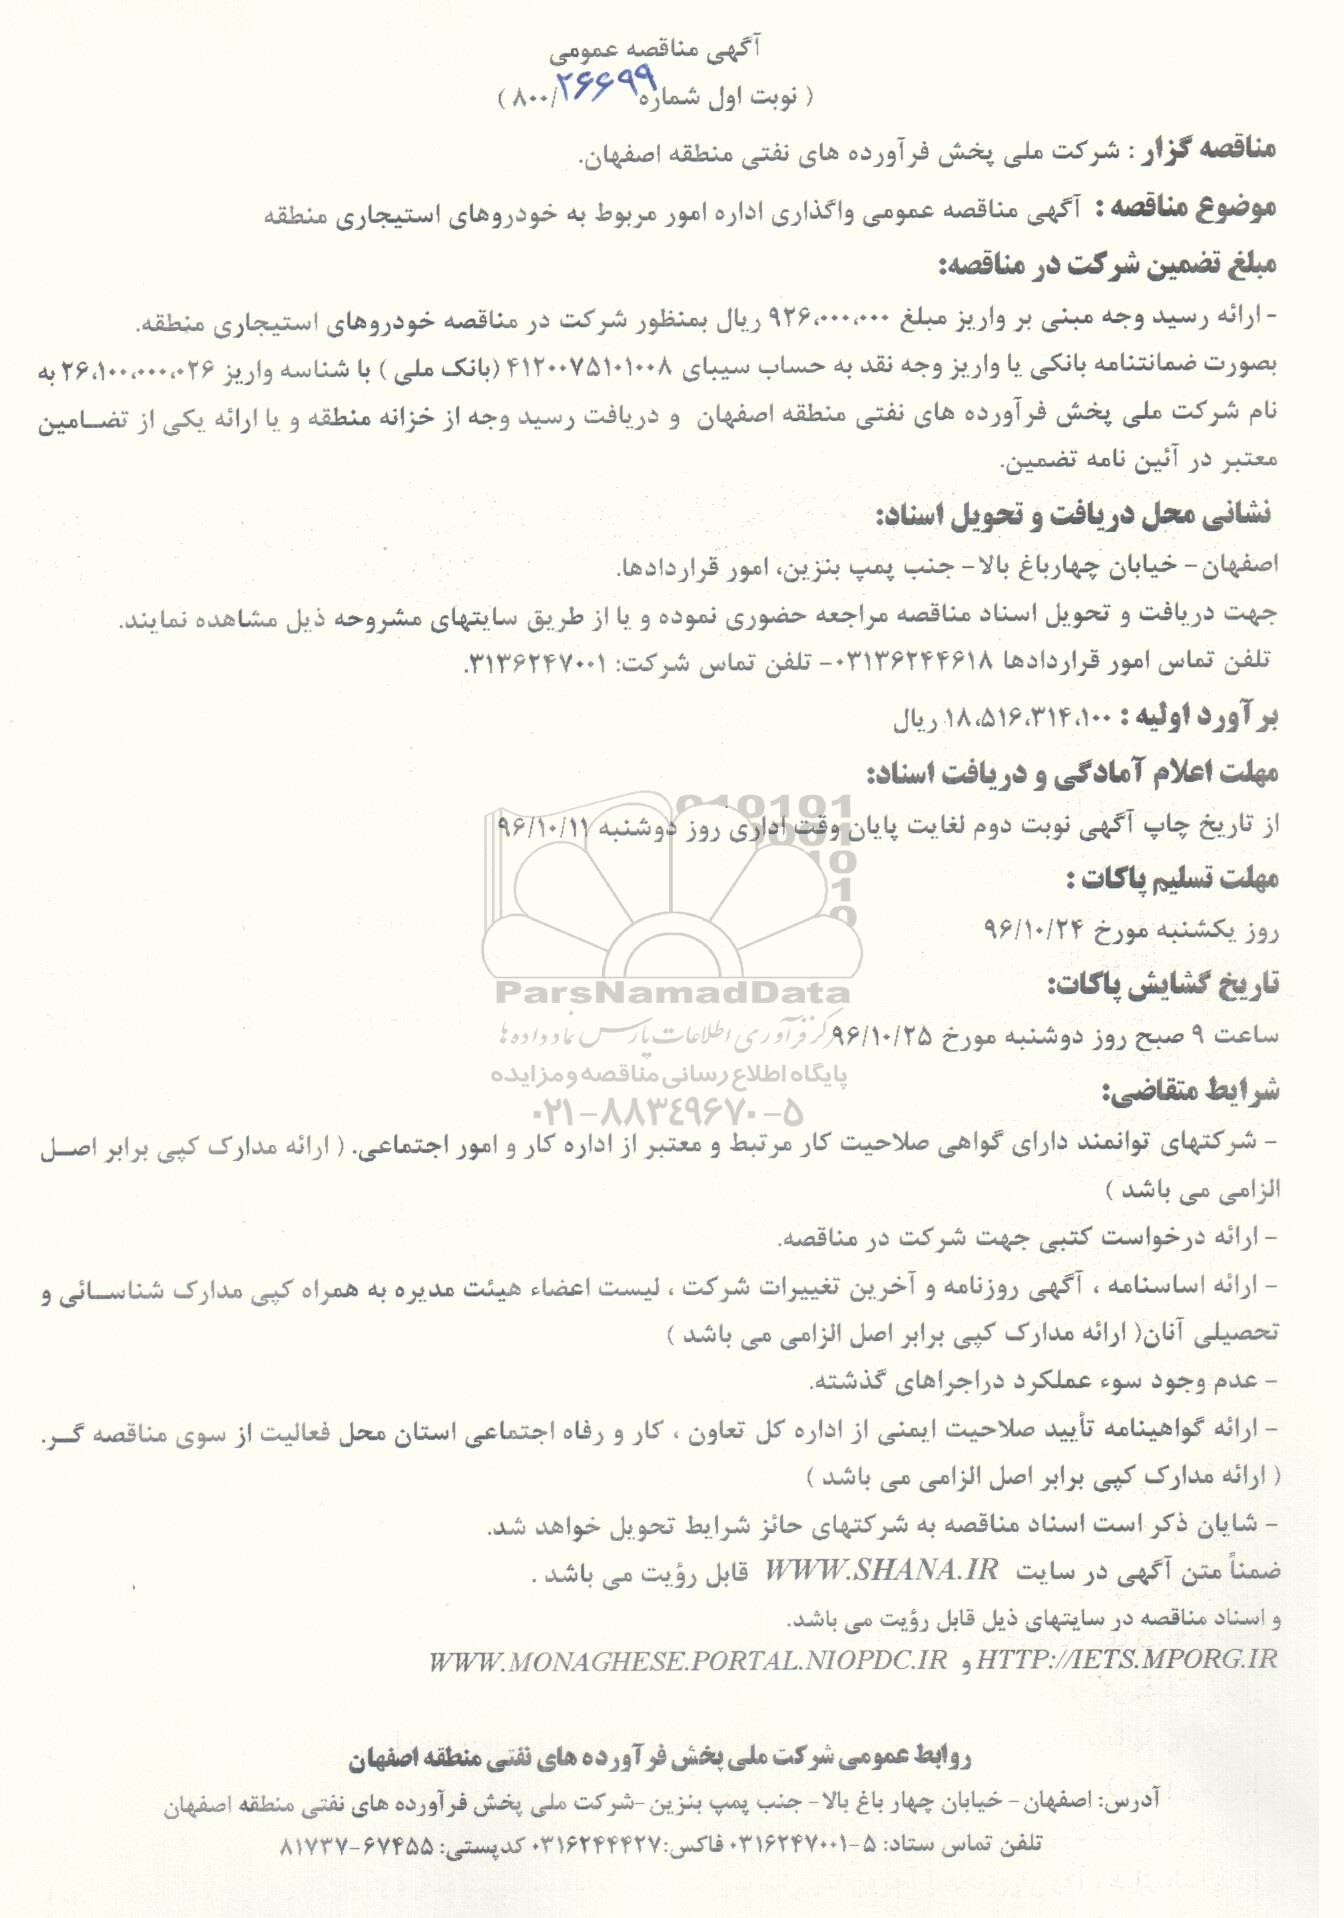 آگهی مناقصه عمومی
( نوبت اول شماره ۲۶۶۹۹/۸۰۰ )
مناقصه گزار : شرکت ملی پخش فرآورده های نفتی منطقه اصفهان.
موضوع مناقصه : آگهی مناقصه عمومی واگذاری اداره امور مربوط به خودروهای استیجاری منطقه
مبلغ تضمین شرکت در مناقصه:
- ارائه رسید وجه مبنی بر واریز مبلغ ۹۲۶،۰۰۰،۰۰۰ ریال بمنظور شرکت در مناقصه خودروهای استیجاری منطقه.
بصورت ضمانتنامه بانکی یا واریز وجه نقد به حساب سیبای ۴۱۲۰۰۷۵۱۰۱۰۰۸ (بانک ملی ) با شناسه واریز ۲۶،۱۰۰،۰۰۰،۰۲۶ به
نام شرکت ملی پخش فرآورده های نفتی منطقه اصفهان و دریافت رسید وجه از خزانه منطقه و یا ارائه یکی از تضـامین
معتبر در آئین نامه تضمین.
نشانی محل دریافت و تحویل اسناد:
اصفهان- خیابان چهارباغ بالا- جنب پمپ بنزین، امور قراردادها.
جهت دریافت و تحویل اسناد مناقصه مراجعه حضوری نموده و یا از طریق سایتهای مشروحه ذیل مشاهده نمایند.
تلفن تماس امور قراردادها ۰۳۱۳۶۲۴۴۶۱۸- تلفن تماس شرکت: ۳۱۳۶۲۴۷۰۰۱.
برآورد اولیه : ۱۸،۵۱۶،۳۱۴،۱۰۰ ریال
مهلت اعلام آمادگی و دریافت اسناد:
از تاریخ چاپ آگهی نوبت دوم لغایت پایان وقت اداری روز دوشنبه ۹۶/۱۰/۱۱
مهلت تسلیم پاکات :
روز یکشنبه مورخ ۹۶/۱۰/۲۴
ParsNamadData
تاریخ گشایش پاکات:
ساعت ۹ صبح روز دوشنبه مورخ ۹۶/۱۰/۲۵
مرکز فرآوری اطلاعات پارس نماد داده ها
پایگاه اطلاع رسانی مناقصه و مزایده
۰۲۱-۸۸۳۴۹۶۷۰-۵
شرایط متقاضی:
- شرکتهای توانمند دارای گواهی صلاحیت کار مرتبط و معتبر از اداره کار و امور اجتماعی. ( ارائه مدارک کپی برابر اصـل
الزامی می باشد )
- ارائه درخواست کتبی جهت شرکت در مناقصه.
- ارائه اساسنامه ، آگهی روزنامه و آخرین تغییرات شرکت ، لیست اعضاء هیئت مدیره به همراه کپی مدارک شناسـائی و
تحصیلی آنان( ارائه مدارک کپی برابر اصل الزامی می باشد )
- عدم وجود سوء عملکرد دراجراهای گذشته.
- ارائه گواهینامه تأیید صلاحیت ایمنی از اداره کل تعاون ، کار و رفاه اجتماعی استان محل فعالیت از سوی مناقصه گـر.
( ارائه مدارک کپی برابر اصل الزامی می باشد )
- شایان ذکر است اسناد مناقصه به شرکتهای حائز شرایط تحویل خواهد شد.
ضمناً متن آگهی در سایت WWW.SHANA.IR قابل رؤیت می باشد .
و اسناد مناقصه در سایتهای ذیل قابل رؤیت می باشد.
HTTP://IETS.MPORG.IR و WWW.MONAGHESE.PORTAL.NIOPDC.IR
روابط عمومی شرکت ملی پخش فرآورده های نفتی منطقه اصفهان
آدرس: اصفهان - خیابان چهار باغ بالا- جنب پمپ بنزین -شرکت ملی پخش فرآورده های نفتی منطقه اصفهان
تلفن تماس ستاد: ۵-۰۳۱۶۲۴۷۰۰۱ فاکس:۰۳۱۶۲۴۴۴۲۷ کدپستی: ۶۷۴۵۵-۸۱۷۳۷